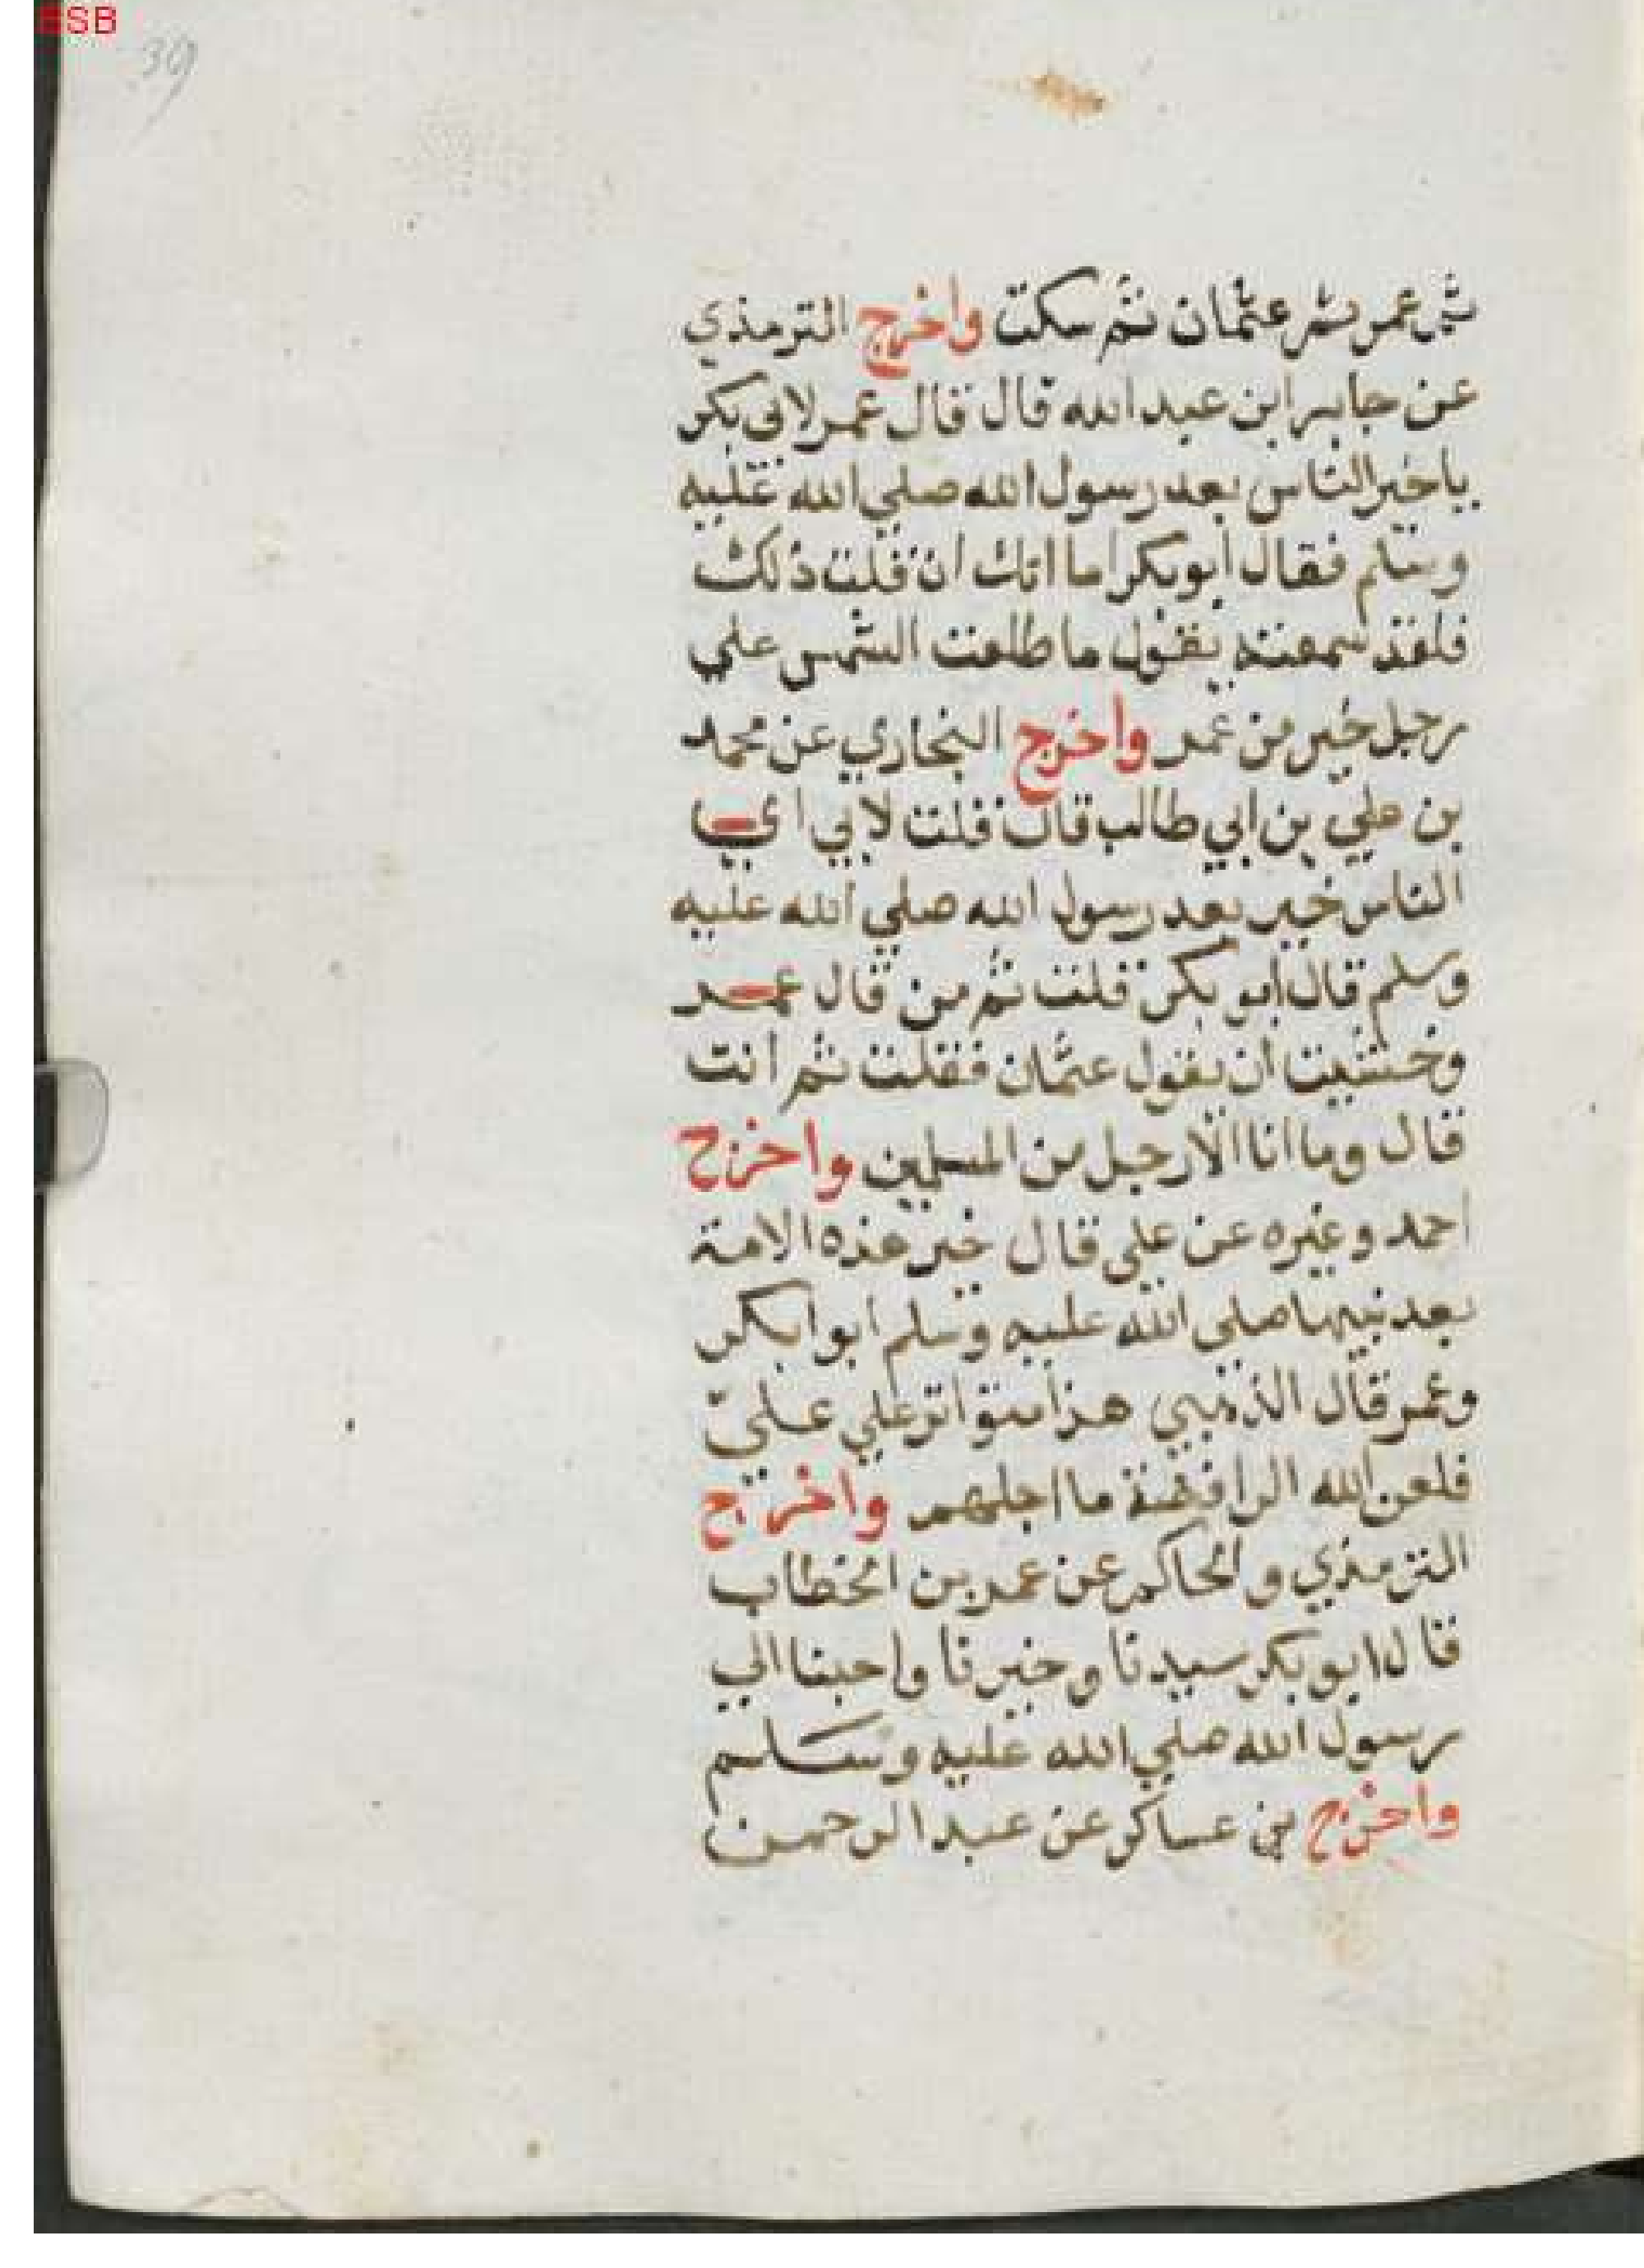 BSB
39
ثم عمر ثم عثمان ثم سكت واخرج الترمذي
عن جابر ابن عبد الله قال قال عمر لابي بكر
ياخير الناس بعد رسول الله صلي الله عليه
وسلم فقال ابوبكر اما انك ان قلت ذلك
فلقد سمعته يقول ما طلعت الشمس علي
رجل خير من عمر واخرج البخاري عن محمد
بن علي بن ابي طالب قال قلت لابي اي
الناس خير بعد رسول الله صلي الله عليه
وسلم قال ابو بكر قلت ثم من قال عمر
وخشيت ان يقول عثمان فقلت ثم انت
قال وما انا الا رجل من المسلمين واخرج
احمد وغيره عن علي قال خير هذه الامة
بعد نبيها صلي الله عليه وسلم ابو ابكر
وعمر قال الذهبي هذا متواتر علي علي
فلعن الله الرافضة ما اجلهم واخرج
الترمذي والحاكم عن عمر بن الخطاب
قال ابو بكر سيدنا وخيرنا واحبنا الي
رسول الله صلي الله عليه وسلم
واخرج بن عساكر عن عبد الرحمن